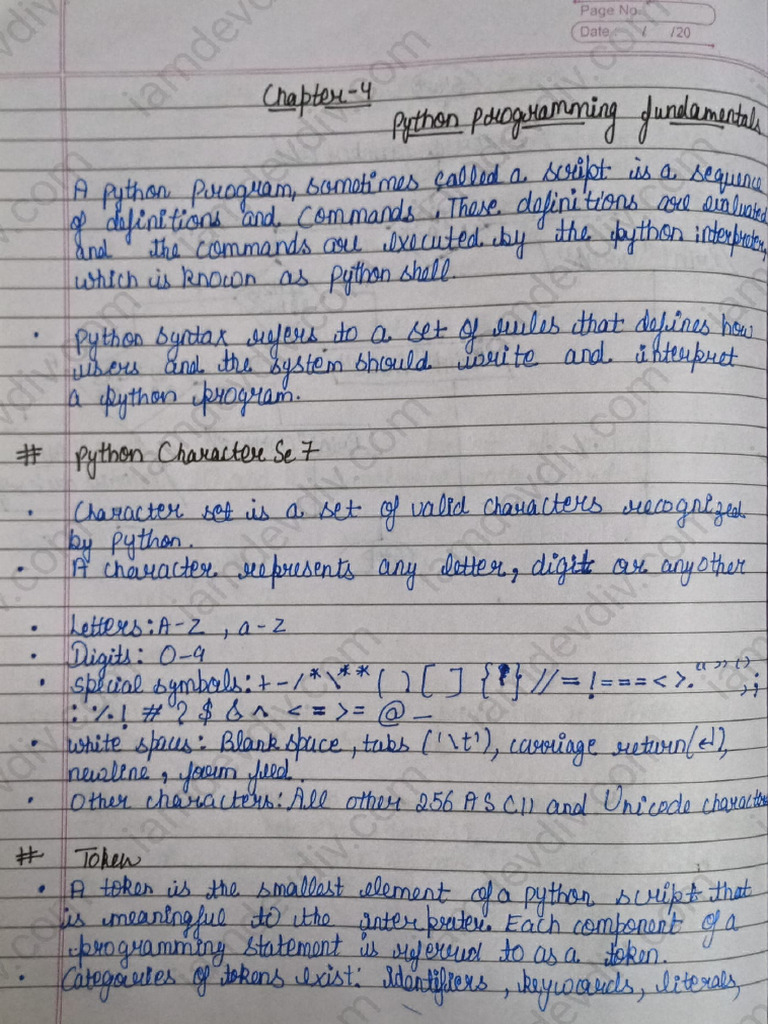 Page No.
Date / /20
Chapter-4
Python Programming fundamentals
A Python Program, sometimes called a script is a sequence
of definitions and commands. These definitions are evaluated
and the commands are executed by the python interpreter,
which is known as Python shell.
• Python syntax refers to a set of rules that defines how
users and the system should write and interpret
a python program.
# Python Character Set
• Character set is a set of valid characters recognized
by python.
• A character represents any letter, digit or any other
• Letters: A-Z, a-z
• Digits: 0-9
• Special symbols: + - / * \ ** ( ) [ ] { } // = != == < > . " " ' ' , ;
: % ! # ? $ & ^ < = > = @ _
• White spaces: Blank space, tabs ('\t'), carriage return(↵),
newline, form feed.
• Other characters: All other 256 ASCII and Unicode character
# Token
• A token is the smallest element of a python script that
is meaningful to the interpreter. Each component of a
programming statement is refered to as a token.
• Categories of tokens exist: Identifiers, keywords, literals,
iamdevdiv.com